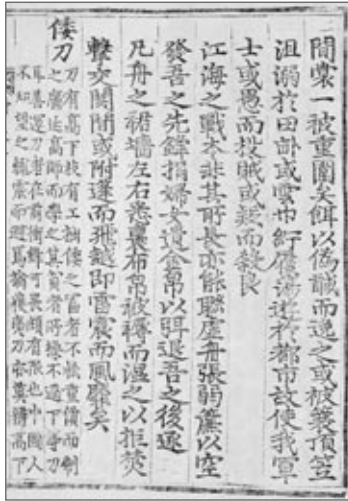 間嘗一被重圍矣餌以偽馘而逸之或被蓑頂笠
沮溺於田畝或雲巾紵履蕩遊於都市故使我軍
士或愚而投賊或疑而殺良
江海之戰本非其所長亦能聯虛舟張弱簾以空
發吾之先鋒捐婦女遺金帛以餌退吾之後逐
凡舟之裙墻左右悉裹布帛被褥而濕之以拒焚
擊交關間或附蓬而飛越即雷震而風靡矣
倭刀
刀有高下技有工拙倭之富者不恡重價而制
之廣延高師而學之其貧者所操不過下等刀
耳善運刀者在前衝鋒可畏頗有限也中國人
不知望之輒震而避焉擒獲倭刀亦莫辨高下